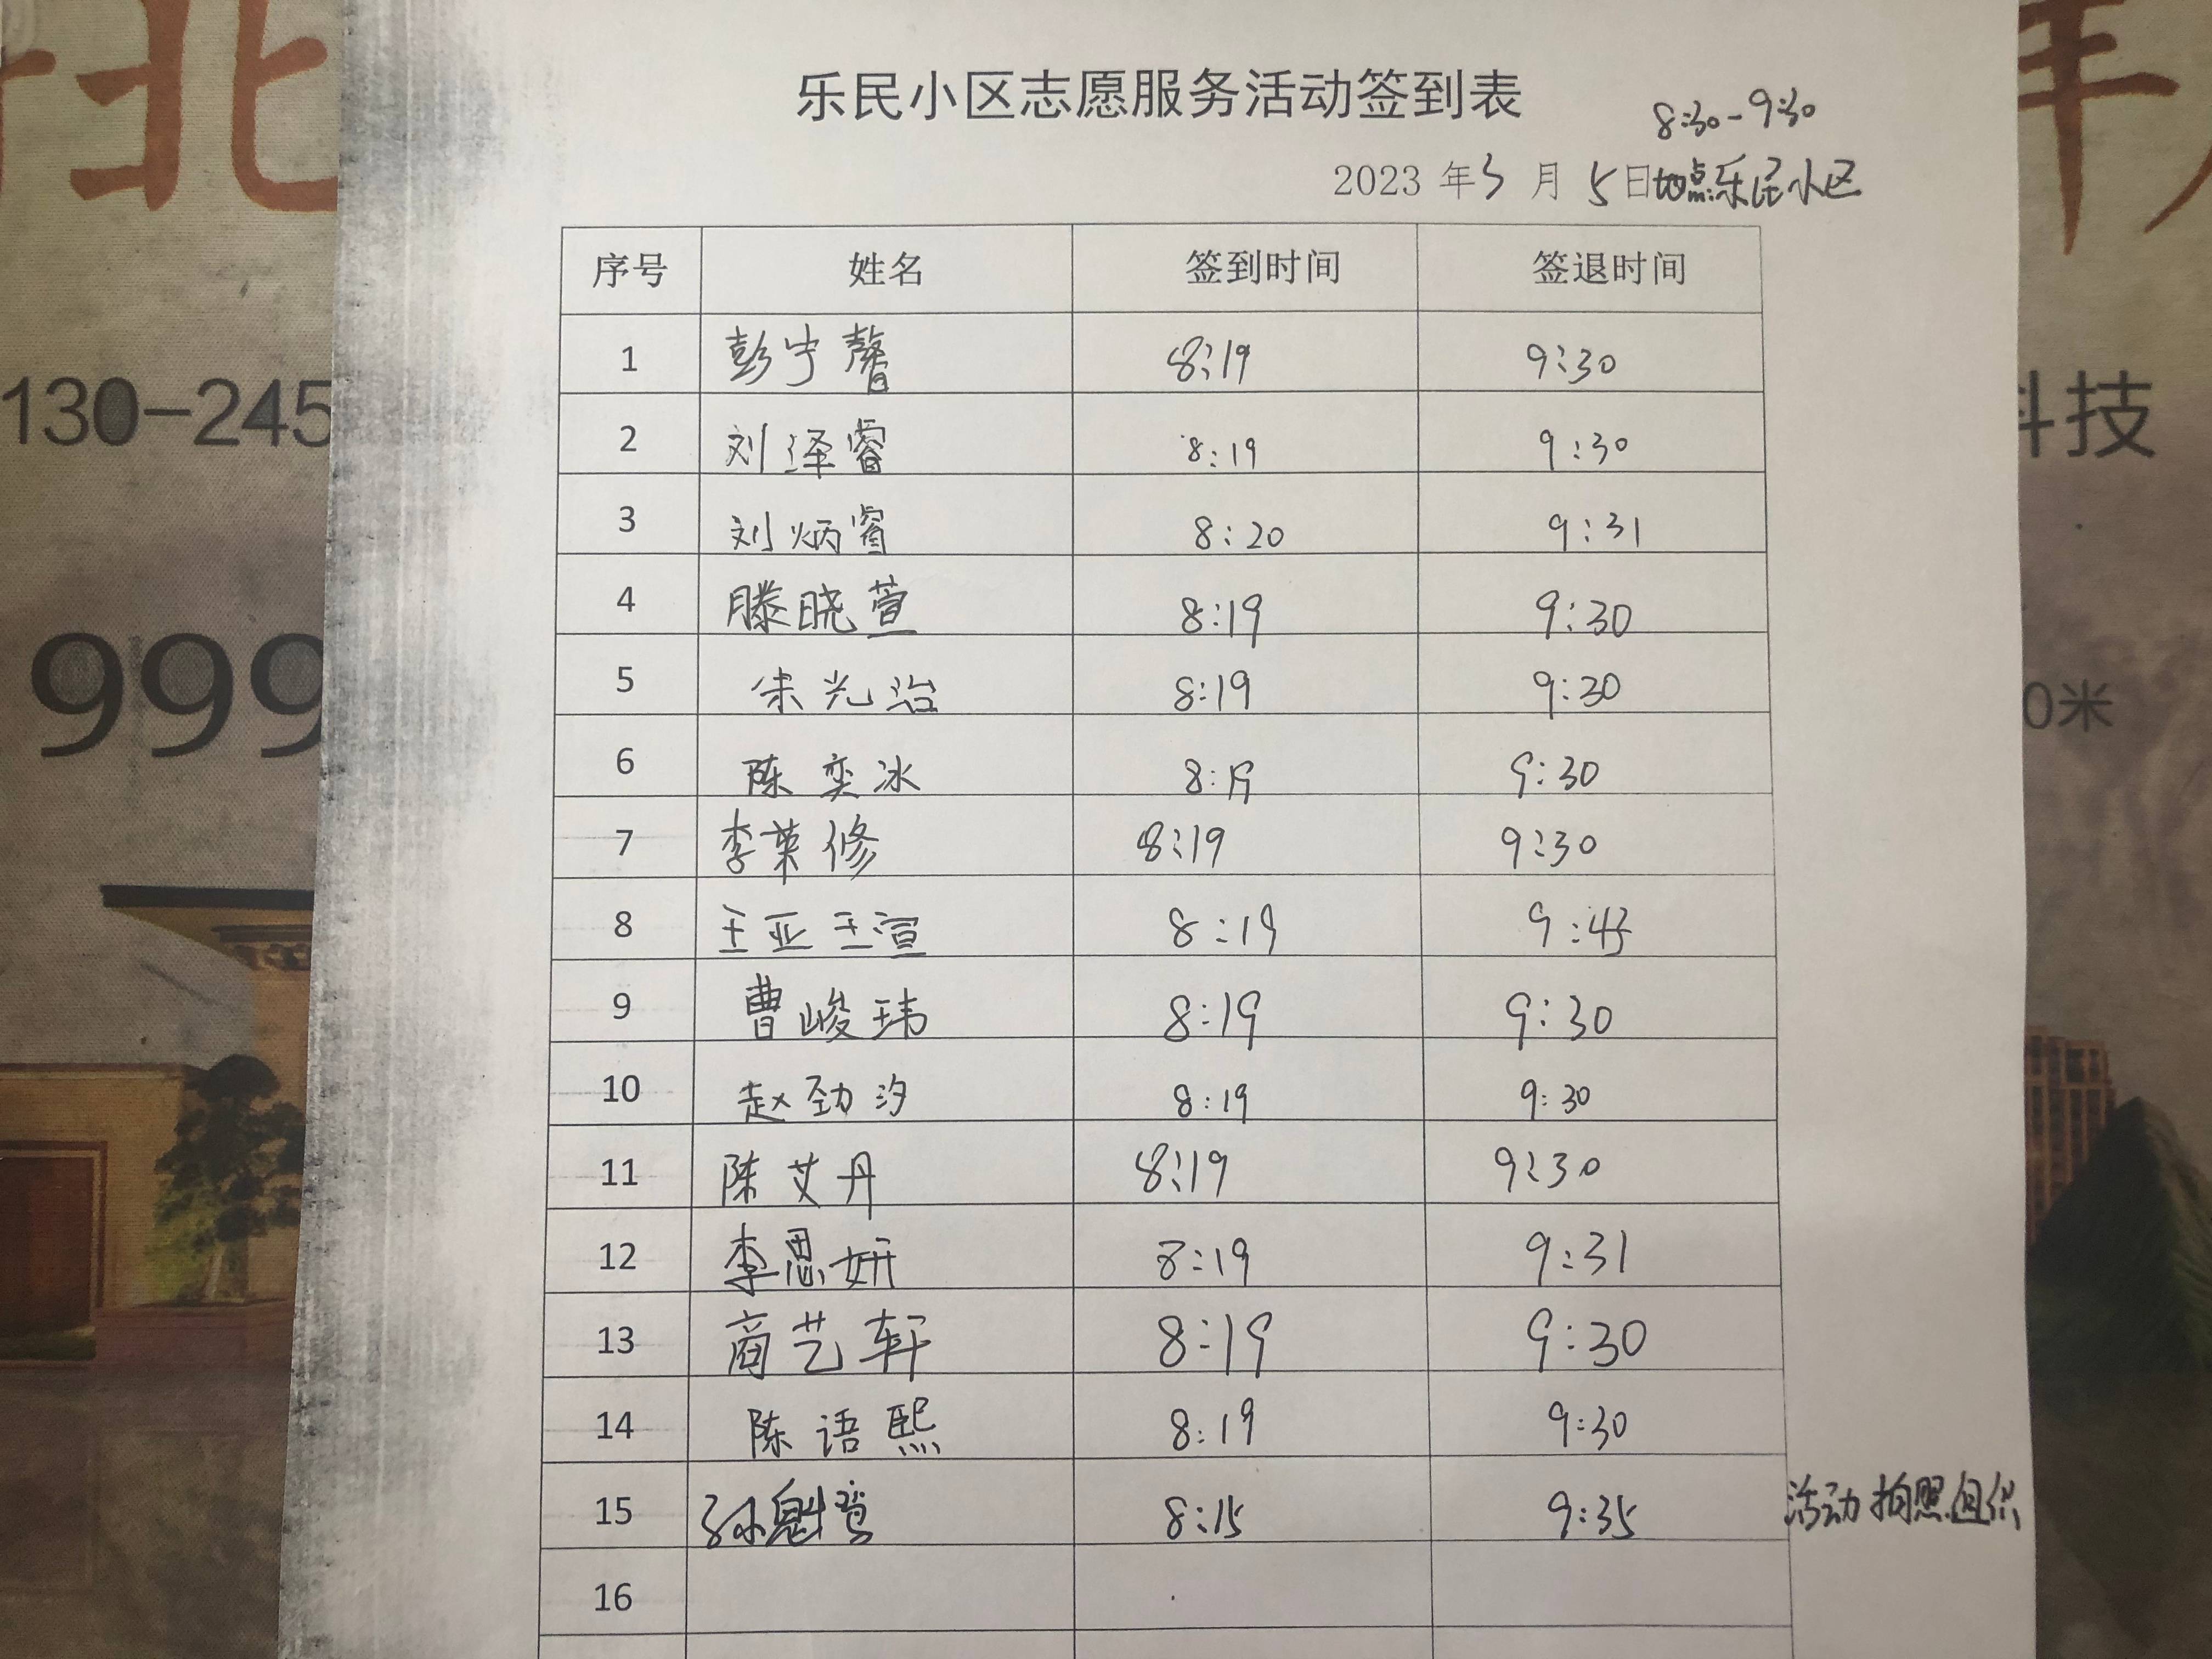 北
130-245
999
科技
0米
乐民小区志愿服务活动签到表
8:30-9:30
2023 年 3 月 5 日 地点:乐民小区
序号 姓名 签到时间 签退时间
1 彭宁馨 8:19 9:30
2 刘泽睿 8:19 9:30
3 刘炳睿 8:20 9:31
4 滕晓萱 8:19 9:30
5 朱光治 8:19 9:30
6 陈奕冰 8:19 9:30
7 李荣修 8:19 9:30
8 王亚瑄 8:19 9:43
9 曹峻玮 8:19 9:30
10 赵劲汐 8:19 9:30
11 陈艾丹 8:19 9:30
12 李思妍 8:19 9:31
13 商艺轩 8:19 9:30
14 陈语熙 8:19 9:30
15 孙魁 8:15 9:35 活动拍照组织
16